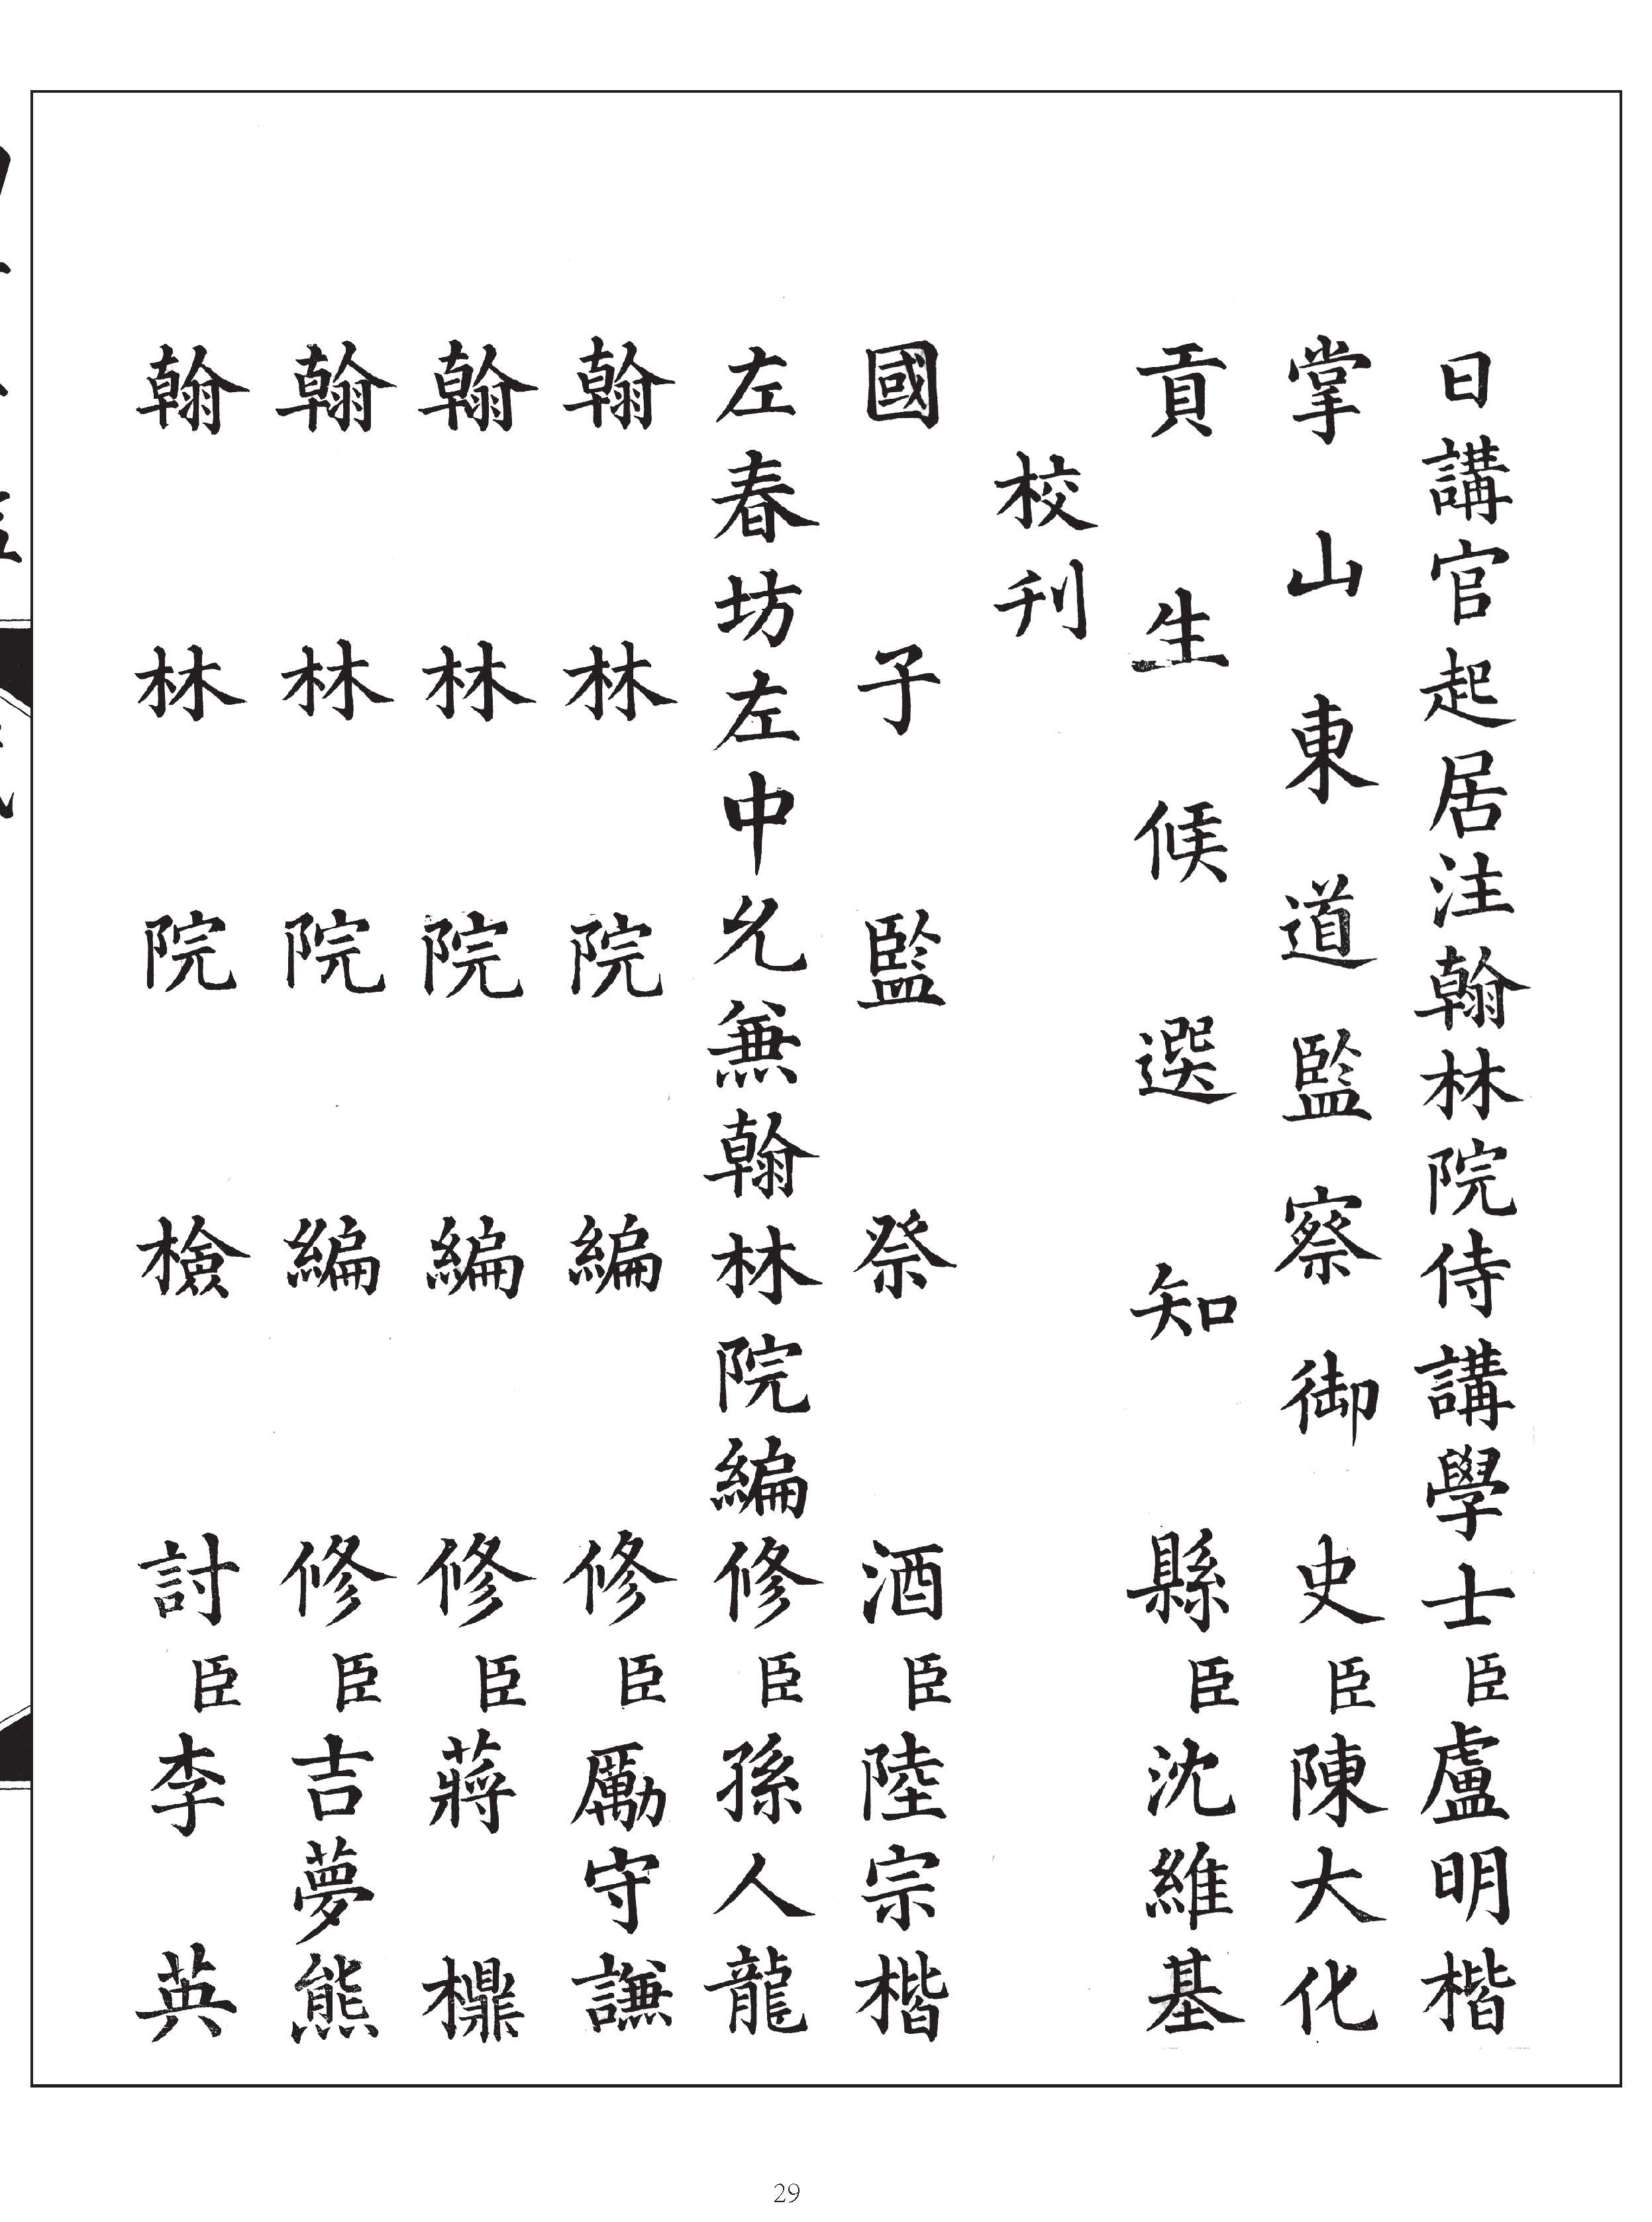 日講官起居注翰林院侍講學士臣盧明楷
掌山東道監察御史臣陳大化
貢生候選知縣臣沈維基
校刊
國子監祭酒臣陸宗楷
左春坊左中允兼翰林院編修臣孫人龍
翰林院編修臣勵守謙
翰林院編修臣蔣檙
翰林院編修臣吉夢熊
翰林院檢討臣李英
29